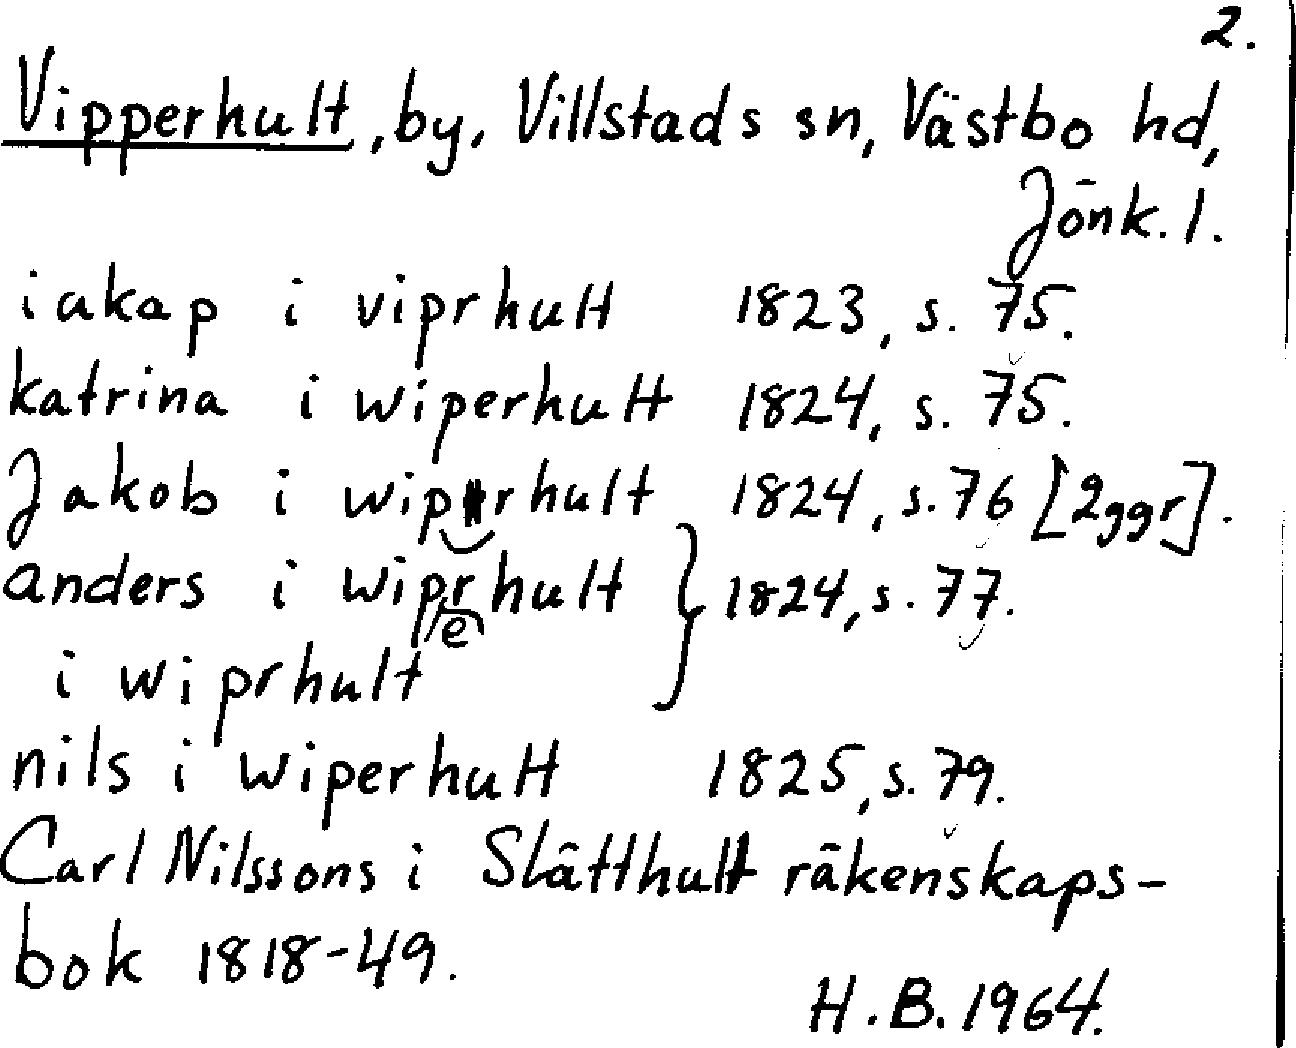 2.
Vipperhult, by, Villstads sn, Västbo hd,
Jönk. l.
iakap i viprhult 1823, s. 75.
katrina i wiperhult 1824, s. 75.
Jakob i wiperhult 1824, s. 76 [2ggr].
anders i wiprhult } 1824, s. 77.
e
i wiprhult
nils i wiperhult 1825, s. 79.
Carl Nilssons i Slätthult räkenskaps-
bok 1818-49.
H.B. 1964.